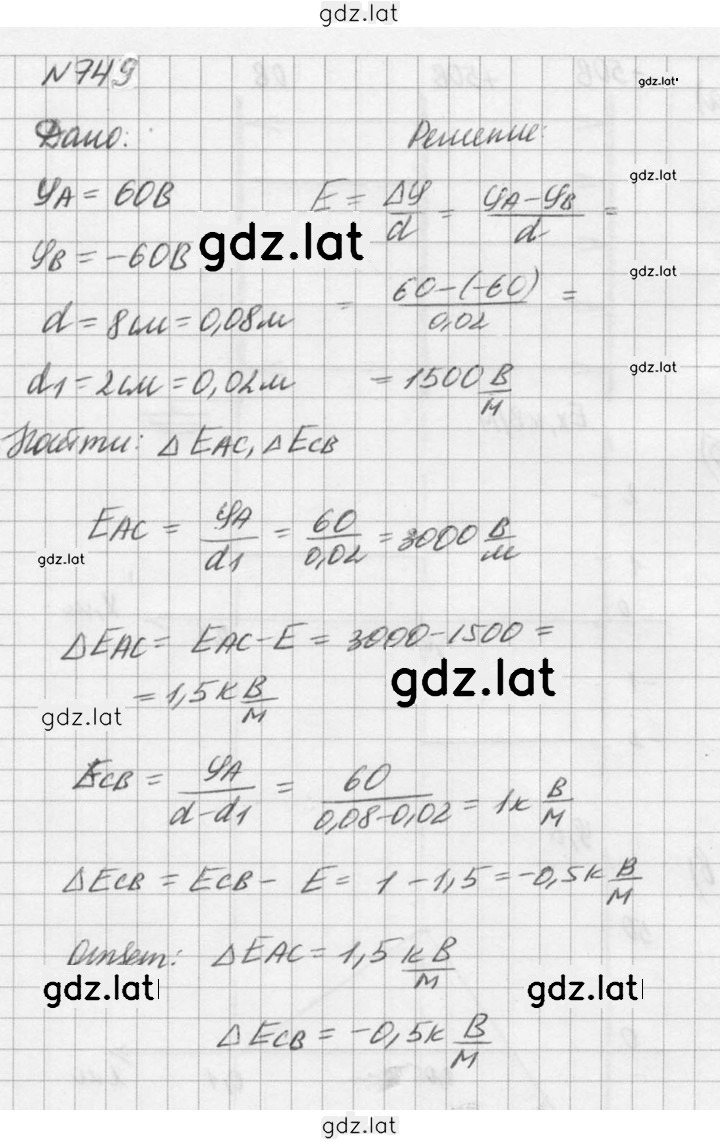 gdz.lat
№749
gdz.lat
Дано:
Решение:
φA = 60В
E = Δφ/d = (φA-φB)/d =
gdz.lat
gdz.lat
φB = -60В
= (60-(-60))/0,02 =
gdz.lat
d = 8см = 0,08м
d1 = 2см = 0,02м
= 1500 В/м
gdz.lat
Найти: ΔEAC, ΔECB
EAC = φA/d1 = 60/0,02 = 3000 В/м
gdz.lat
ΔEAC = EAC - E = 3000-1500 =
gdz.lat
= 1,5к В/м
gdz.lat
ECB = φA/(d-d1) = 60/(0,08-0,02) = 1к В/м
ΔECB = ECB - E = 1 - 1,5 = -0,5к В/м
Ответ: ΔEAC = 1,5 к В/м
gdz.lat
gdz.lat
ΔECB = -0,5к В/м
gdz.lat